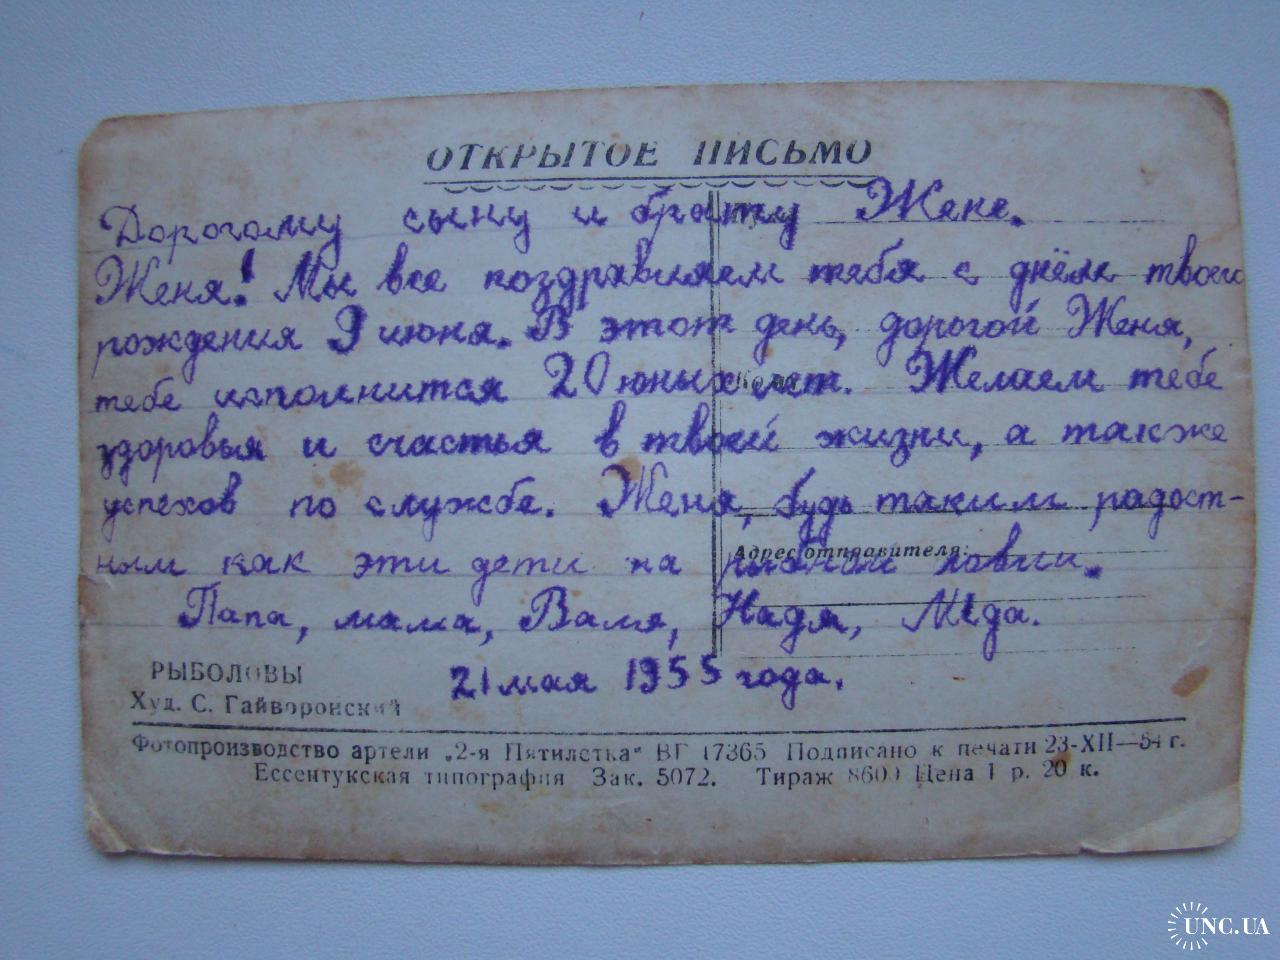 ОТКРЫТОЕ ПИСЬМО
Дорогому сыну и брату Жене.
Женя! Мы все поздравляем тебя с днём твоего
рождения 9 июня. В этот день, дорогой Женя,
тебе исполнится 20 юных лет. Желаем тебе
здоровья и счастья в твоей жизни, а также
успехов по службе. Женя, будь таким радост-
ным как эти дети на рыбной ловли.
Адрес отправителя:
Папа, мама, Валя, Надя, Лида.
21 мая 1955 года.
РЫБОЛОВЫ
Худ. С. Гайворонский
Фотопроизводство артели „2-я Пятилетка" ВГ 17365 Подписано к печати 23-XII—54 г.
Ессентукская типография Зак. 5072. Тираж 8600 Цена 1 р. 20 к.
UNC.UA